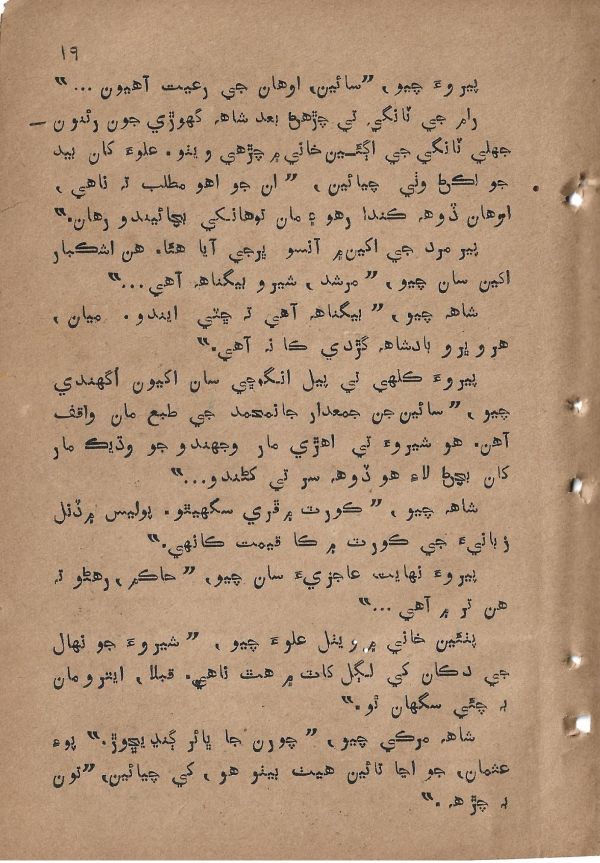 ١٩
پيروءَ چيو، ”سائين، اوهان جي رعيت آهيون...“
رام جي ٽانگي تي چڙهڻ بعد شاهه گهوڙي جون رئنون –
جهلي ٽانگي جي اڳئين خاني ۾ چڙهي ويٺو. علوءَ کان بيد
جو لڪڻ وٺي چيائين، ”ان جو اهو مطلب ته ناهي،
اوهان ڏوهه ڪندا رهو ۽ مان توهانکي بچائيندو رهان.“
پير مرد جي اکين ۾ آنسو ڀرجي آيا هئا. هن اشڪبار
اکين سان چيو، ”مرشد، شيرو بيگناهه آهي...“
شاهه چيو، ”بيگناهه آهي ته ڇٽي ايندو. ميان،
هرو ڀرو بادشاهه گڙدي ڪا نه آهي.“
پيروءَ ڪلهي تي پيل انگوڇي سان اکيون اگهندي
چيو، ”سائين جن جمعدار جانمحمد جي طبع مان واقف
آهن. هو شيروءَ تي اهڙي مار وجهندو جو وڌيڪ مار
کان بچڻ لاءِ هو ڏوهه سر تي کڻندو...“
شاهه چيو، ”ڪورٽ ۾ ڦري سگهيٿو. پوليس ۾ ڏنل
زبانيءَ جي ڪورٽ ۾ ڪا قيمت ڪانهي.“
پيروءَ نهايت عاجزيءَ سان چيو، ”حاڪم، رهڻو ته
هن تر ۾ آهي...“
پٺئين خاني ۾ ويٺل علوءَ چيو، ”شيروءَ جو نهال
جي دڪان کي لڳل کاٽ ۾ هٿ ناهي. قبلا، ايترو مان
به چئي سگهان ٿو.“
شاهه مرڪي چيو، ”چورن جا ڀائر ڳنڍيڇوڙ.“ پوءِ
عثمان، جو اڃا تائين هيٺ بيٺو هو، کي چيائين، ”تون
به چڙهه.“